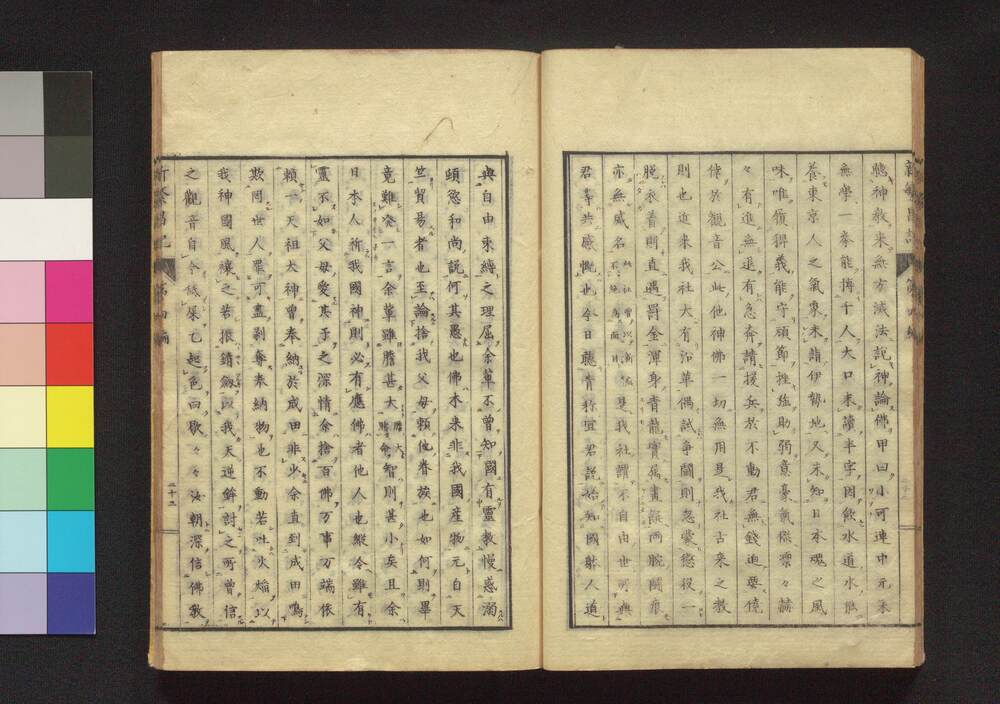 聽神教來無方滅法說神論佛甲曰小可連中元來
無學一拳能搏千人大口未讀半字因飲水道水
養東京人之氣象未詣伊勢地又未知日本魂之風
味唯領得義能守頑節挫強助弱意豪氣傑凜々赫
々有進無退有急奔請援兵於不動君無錢迫要
於觀音公此他神佛一切無用是我社古來之教
則也近來我社大有沿革偶試爭鬪則忽蒙懲役一
脫衣着則直遇罰金渾身青龍寶爲畫餅兩腕
亦無威名 是我社謂不自由世可
君等共感慨也今日聽青於宜君說始知國射人道
典自由束縛之理屈余輩不曾知國有靈教慢惑溺
頑慾和尚說何其愚也佛本來非我國産物元自天
竺貿易者也至論捨我父母賴他眷族也如何則畢
竟難發一言余輩雖膽甚大 智則甚小矣且余
日本人祈我國神則必有應佛者他人也縱令雖有
靈不如父母愛其子之深情余捨百佛万事万端依
賴一天祖大神曾奉納於成田非少余直到成田鳴
欺罔世人罪可盡剥奪奉納物也不動若吐火焔以
我神國風讓之若振錆劔以我天逆鉾討之所曾信
之觀音自今 屎已起色曰歇々々汝朝深信佛教
新繁昌記 第四編
二十三